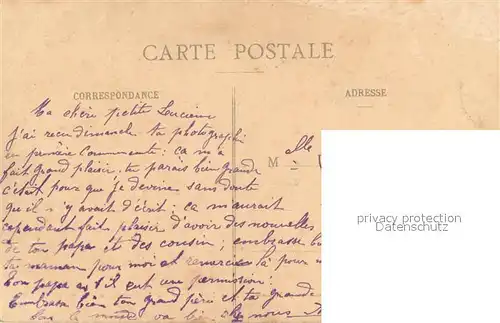 CARTE POSTALE
CORRESPONDANCE
ADRESSE
Ma chère petite Lucienne
j'ai recu dimanche ta photographi
en première Communiante : ca m'a
fait grand plaisir. tu parais bien grande
c'était pour que je devine sans doute
qu'il n'y avait d'écrit : ca m'aurait
cependant fait plaisir d'avoir des nouvelles
de ton papa et des cousins ; embrasse
ta maman pour moi et remercie là pour
ton papa a-t-il eut une permission.
Embrasse bien ton grand père et ta grande
le monde va bien chez nous
M elle
privacy protection
delcampe.net